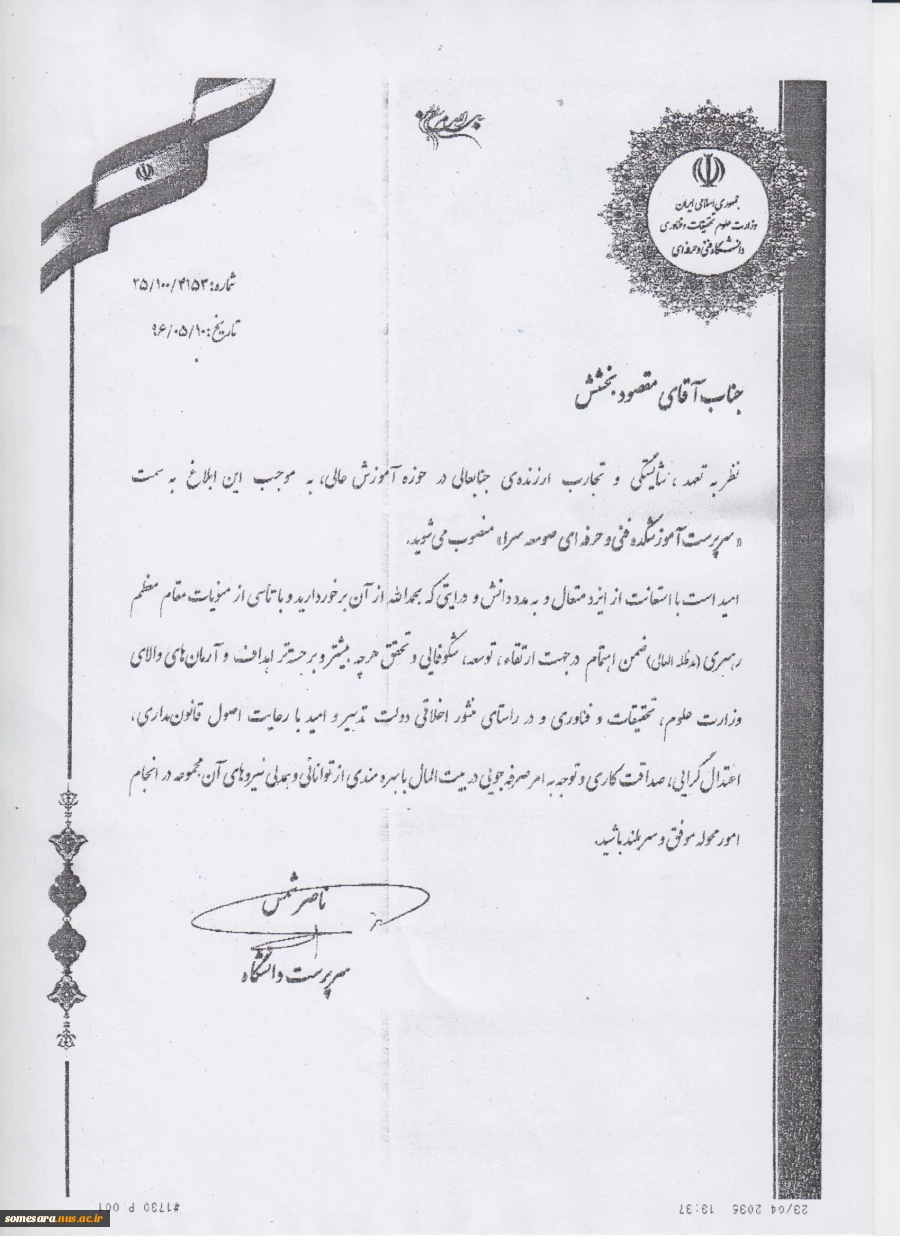 جمهوری اسلامی ایران
وزارت علوم تحقیقات و فناوری
دانشگاه فنی و حرفه‌ای
شماره: ۲۵/۱۰۰/۴۱۵۳
تاریخ: ۹۶/۰۵/۱۰
جناب آقای مقصود بخشش
نظر به تعهد ، شایستگی و تجارب ارزنده‌ی جنابعالی در حوزه آموزش عالی، به موجب این ابلاغ به سمت
«سرپرست آموزشکده فنی و حرفه ای صومعه سرا» منصوب می‌شوید.
امید است با استعانت از ایزد متعال و به مدد دانش و درایتی که بحمدالله از آن برخوردارید و با تأسی از منویات مقام معظم
رهبری (مدظله العالی) ضمن اهتمام در جهت ارتقاء ، توسعه، شکوفایی و تحقق هرچه بیشتر و برجسته‌تر اهداف و آرمان‌های والای
وزارت علوم، تحقیقات و فناوری و در راستای منشور اخلاقی دولت تدبیر و امید با رعایت اصول قانون‌مداری،
اعتدال گرایی، صداقت کاری و توجه به امر صرفه جویی در بیت المال با بهره مندی از توانائی و همدلی نیروهای آن مجموعه در انجام
امور محوله موفق و سربلند باشید.
ناصر شمس
سرپرست دانشگاه
#1730 P.001
23/04 2036 13:37
somesara.nus.ac.ir